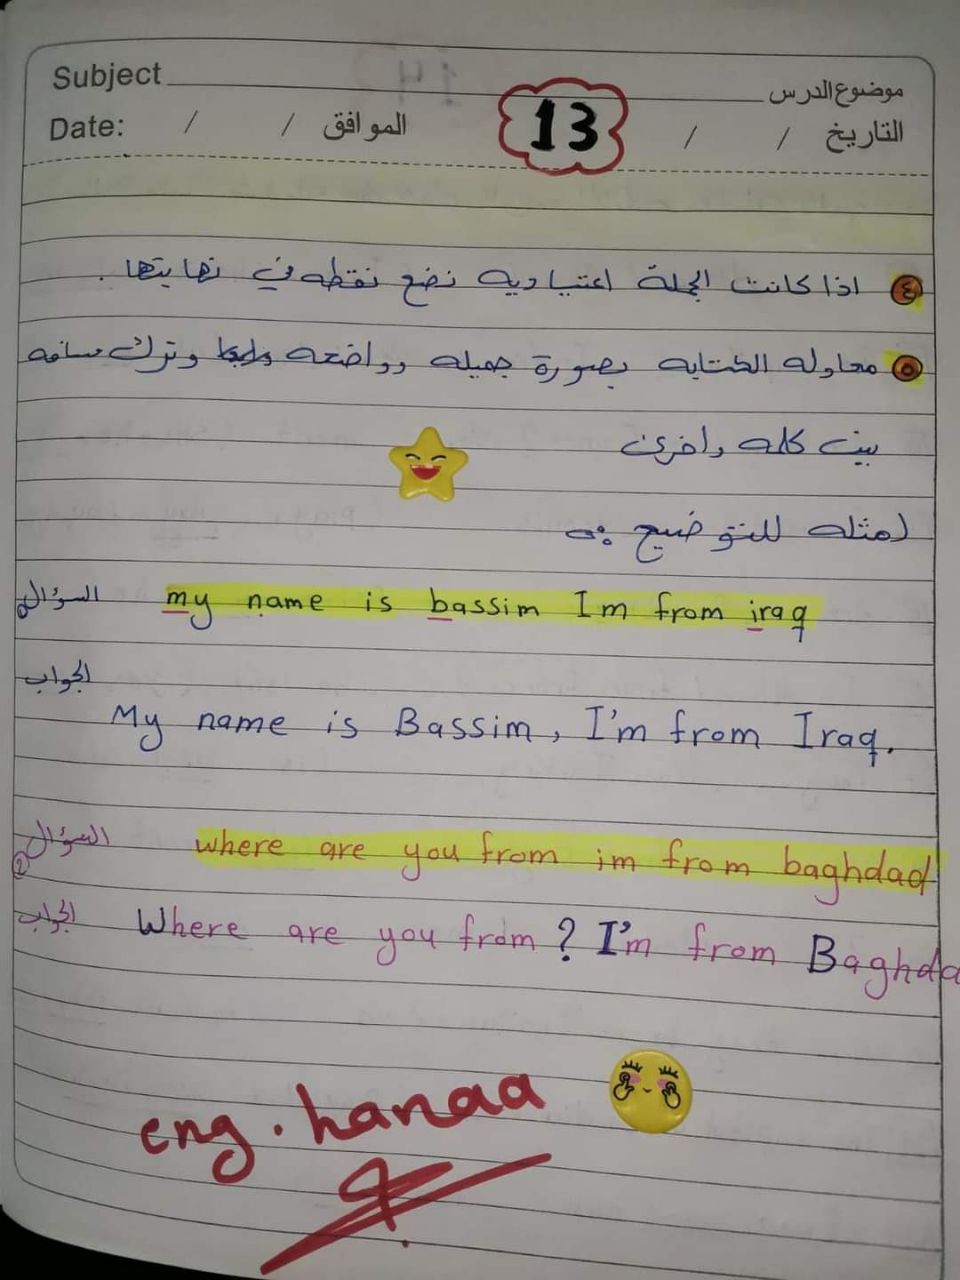 Subject موضوع الدرس
Date: / / الموافق 13 / / التاريخ
٤ اذا كانت الجملة اعتياديه نضع نقطه في نهايتها .
٥ محاوله الكتابه بصورة جميله وواضحه وترك مسافه
بين كلمه واخرى
امثله للتوضيح :-
السؤال my name is bassim Im from iraq
الجواب
My name is Bassim, I'm from Iraq.
السؤال ② where are you from im from baghdad
الجواب Where are you from ? I'm from Baghda
eng. hanaa